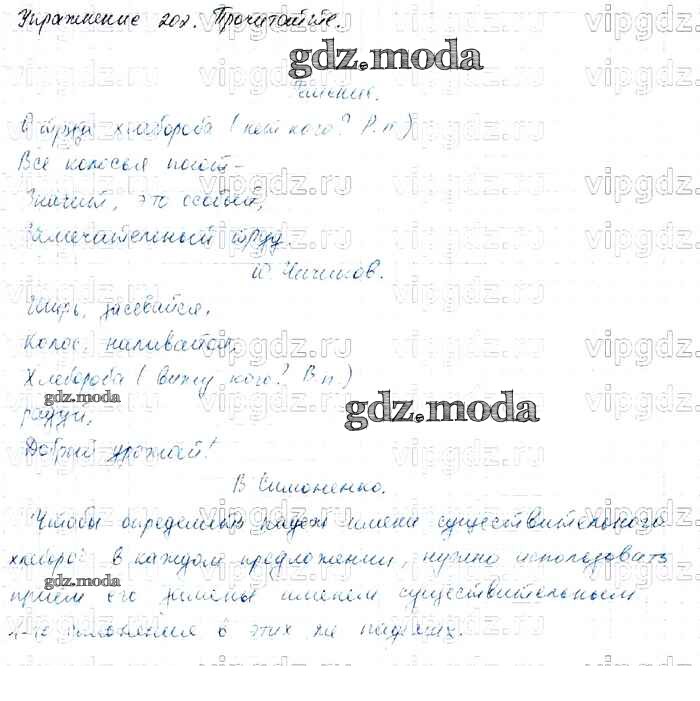 Упражнение 207. Прочитайте.
gdz.moda
Решение.
О труде хлебороба (нет кого? Р.п.)
Все колосья поют –
Значит, это особый,
Замечательный труд.
Ю. Чичиков.
Ширь, засевайся,
Колос, наливайся,
Хлебороба (вижу кого? В.п.)
gdz.moda
радуй,
gdz.moda
Добрый урожай!
В. Симоненко.
Чтобы определить падеж имени существительного
хлебороб в каждом предложении, нужно использовать
gdz.moda
приём его замены именем существительным
склонения в этих же падежах.
vipgdz.ru